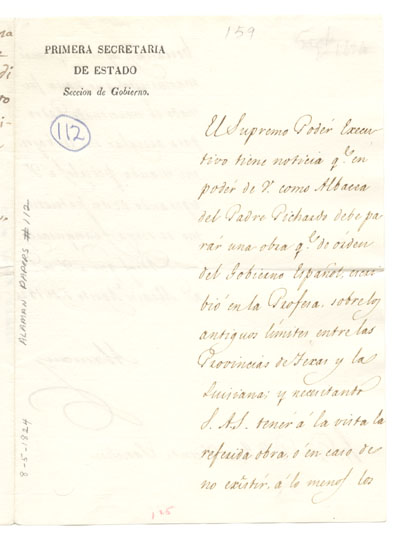 159
PRIMERA SECRETARIA
DE ESTADO
Seccion de Gobierno.
112
El Supremo Poder Execu
tivo tiene noticia q.e en
poder de V. como Albacea
del Padre Pichardo debe pa
rár una obra q.e de orden
del Gobierno Español, escri
bió en la Profesa, sobre los
antiguos límites entre las
Provincias de Texas y la
Luisiana; y necesitando
S.A.S. tener á la vista la
referida obra, ó en caso de
no existír, á lo menos los
ALAMAN PAPERS # 112
8-5-1824